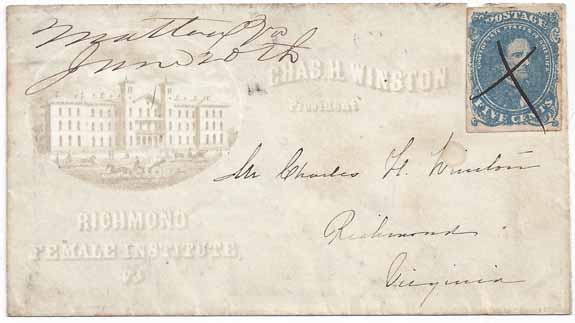 Mattoax Va
June 20th
CHAS. H. WINSTON
President
POSTAGE
CONFEDERATE STATES OF AMERICA
FIVE CENTS
RICHMOND
FEMALE INSTITUTE,
Va
Mr Charles H. Winston
Richmond
Virginia